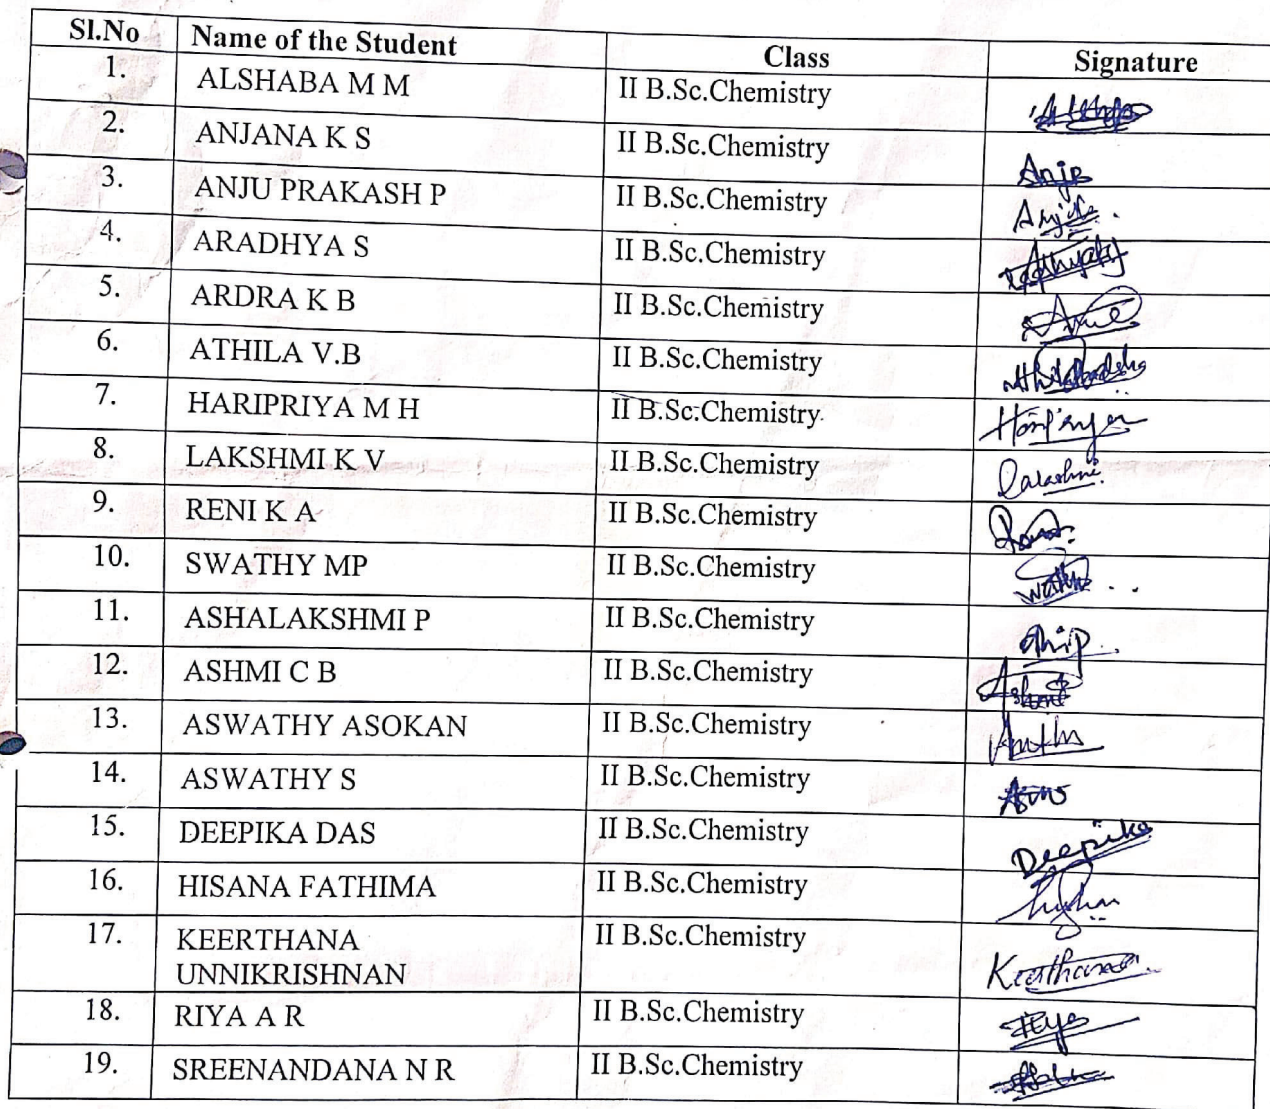 Sl.No Name of the Student Class Signature
1. ALSHABA M M II B.Sc.Chemistry
2. ANJANA K S II B.Sc.Chemistry
3. ANJU PRAKASH P II B.Sc.Chemistry
4. ARADHYA S II B.Sc.Chemistry
5. ARDRA K B II B.Sc.Chemistry
6. ATHILA V.B II B.Sc.Chemistry
7. HARIPRIYA M H II B.Sc.Chemistry
8. LAKSHMI K V II B.Sc.Chemistry
9. RENI K A II B.Sc.Chemistry
10. SWATHY MP II B.Sc.Chemistry
11. ASHALAKSHMI P II B.Sc.Chemistry
12. ASHMI C B II B.Sc.Chemistry
13. ASWATHY ASOKAN II B.Sc.Chemistry
14. ASWATHY S II B.Sc.Chemistry
15. DEEPIKA DAS II B.Sc.Chemistry Deepika
16. HISANA FATHIMA II B.Sc.Chemistry
17. KEERTHANA II B.Sc.Chemistry
UNNIKRISHNAN Keerthana
18. RIYA A R II B.Sc.Chemistry
19. SREENANDANA N R II B.Sc.Chemistry